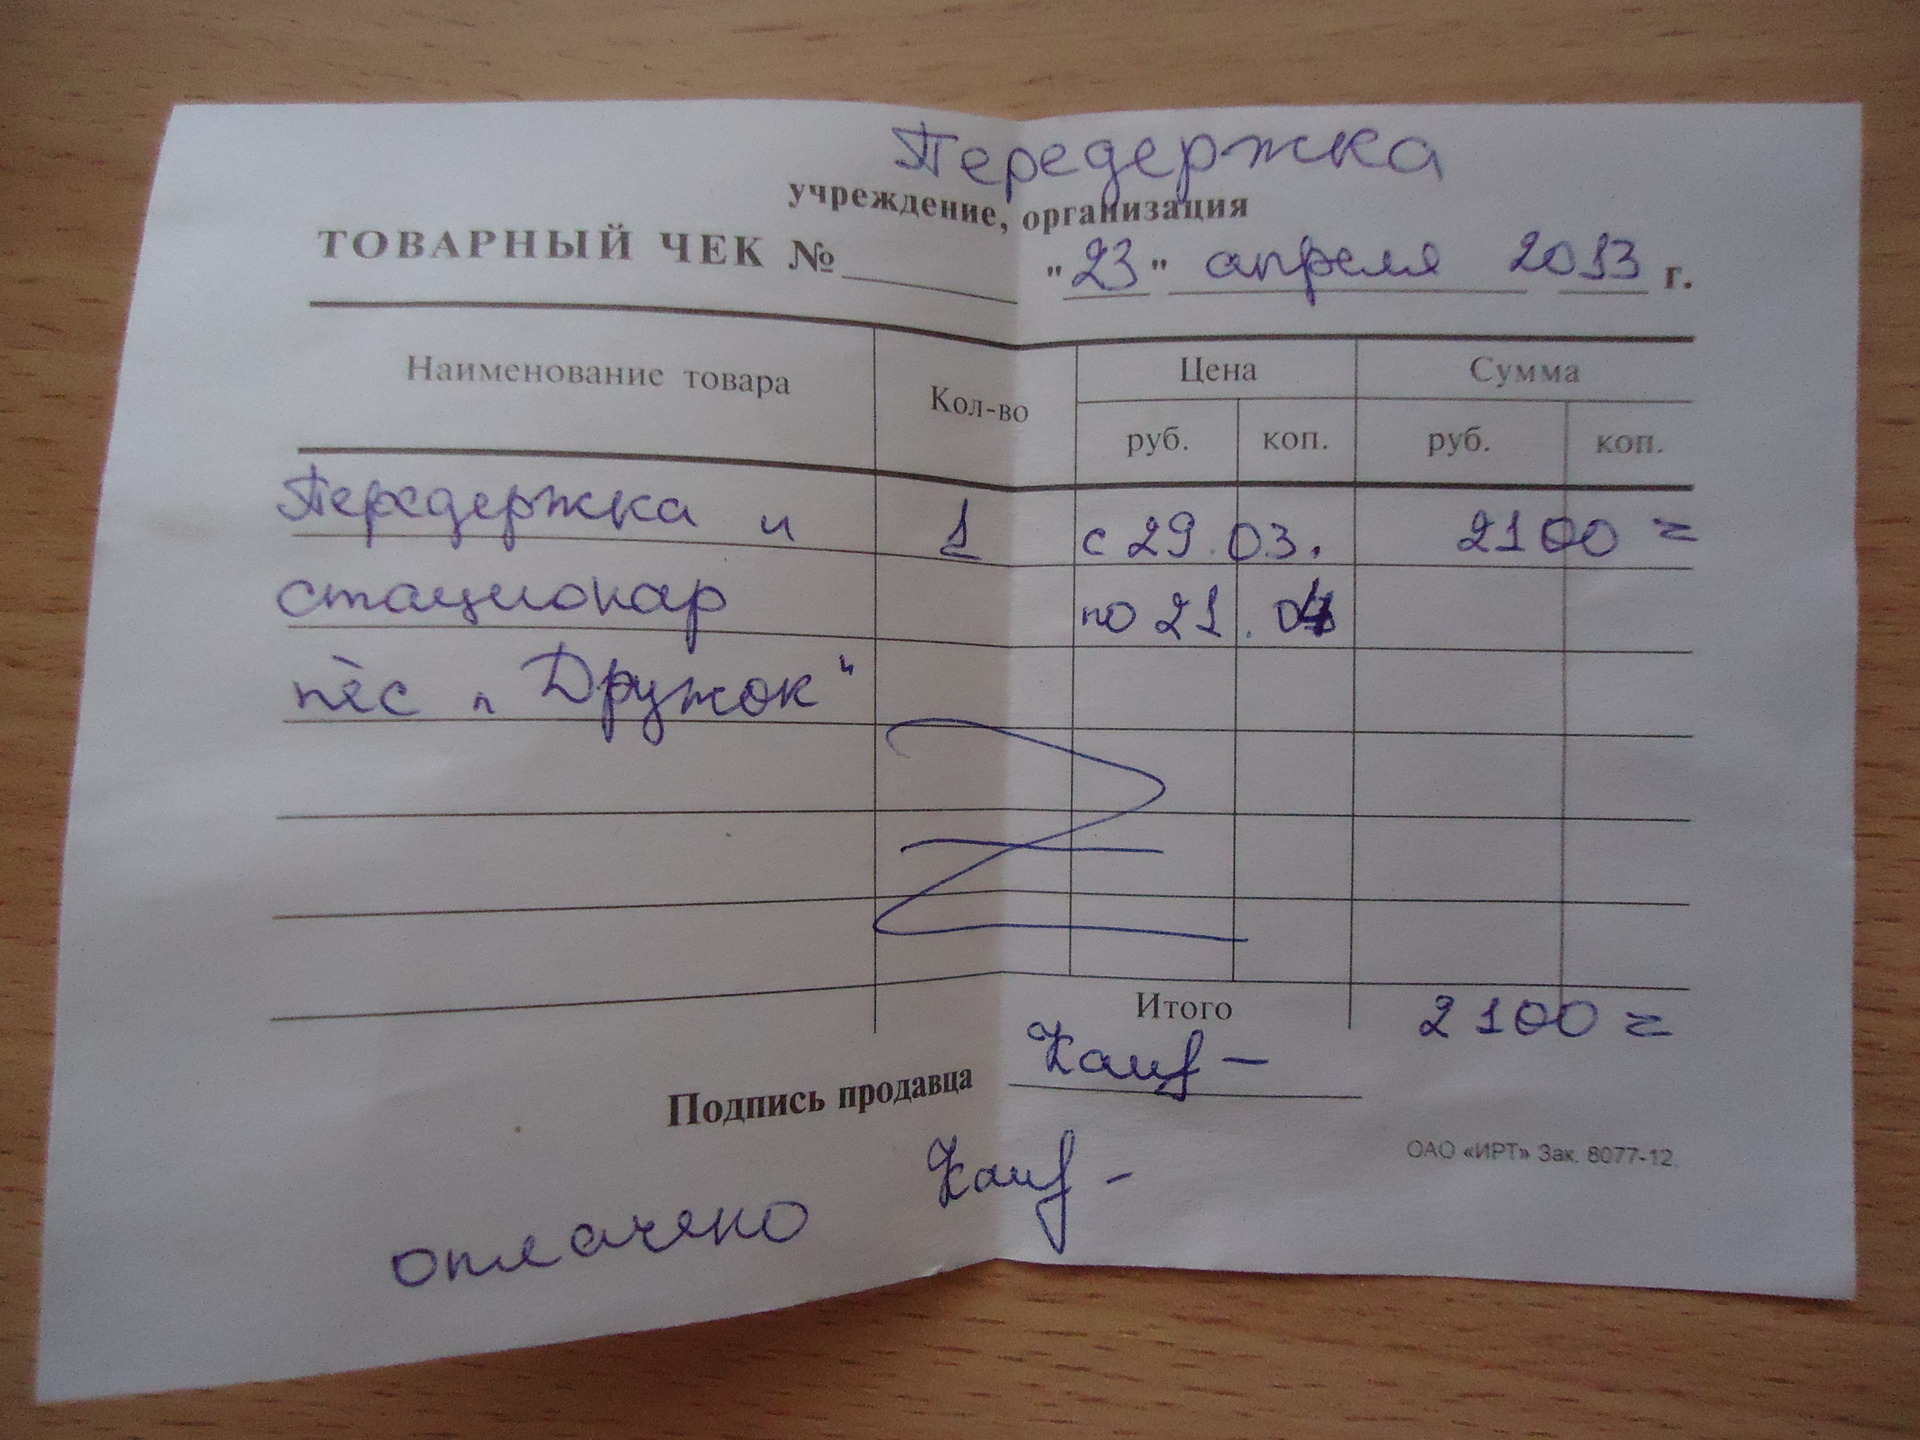 Передержка
учреждение, организация
ТОВАРНЫЙ ЧЕК № "23" апреля 2013 г.
Наименование товара Кол-во Цена Сумма
руб. коп. руб. коп.
Передержка и 1 с 29.03. 2100 =
стационар по 21.04
пёс „Дружок“
Итого 2100 =
Подпись продавца
ОАО «ИРТ» Зак. 8077-12.
оплачено